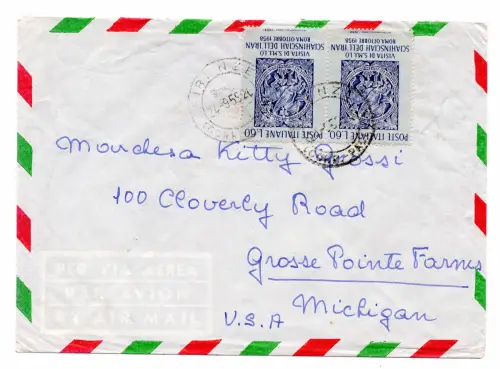 VISITA DI S.M.I. LO
SCIAINSCIAH DELL'IRAN
ROMA OTTOBRE 1958
POSTE ITALIANE L.60
VISITA DI S.M.I. LO
SCIAINSCIAH DELL'IRAN
ROMA OTTOBRE 1958
POSTE ITALIANE L.60
FIRENZE
Kitty Grossi
100 Cloverly Road
Grosse Pointe Farms
Michigan
U.S.A
PER VIA AEREA
PAR AVION
BY AIR MAIL